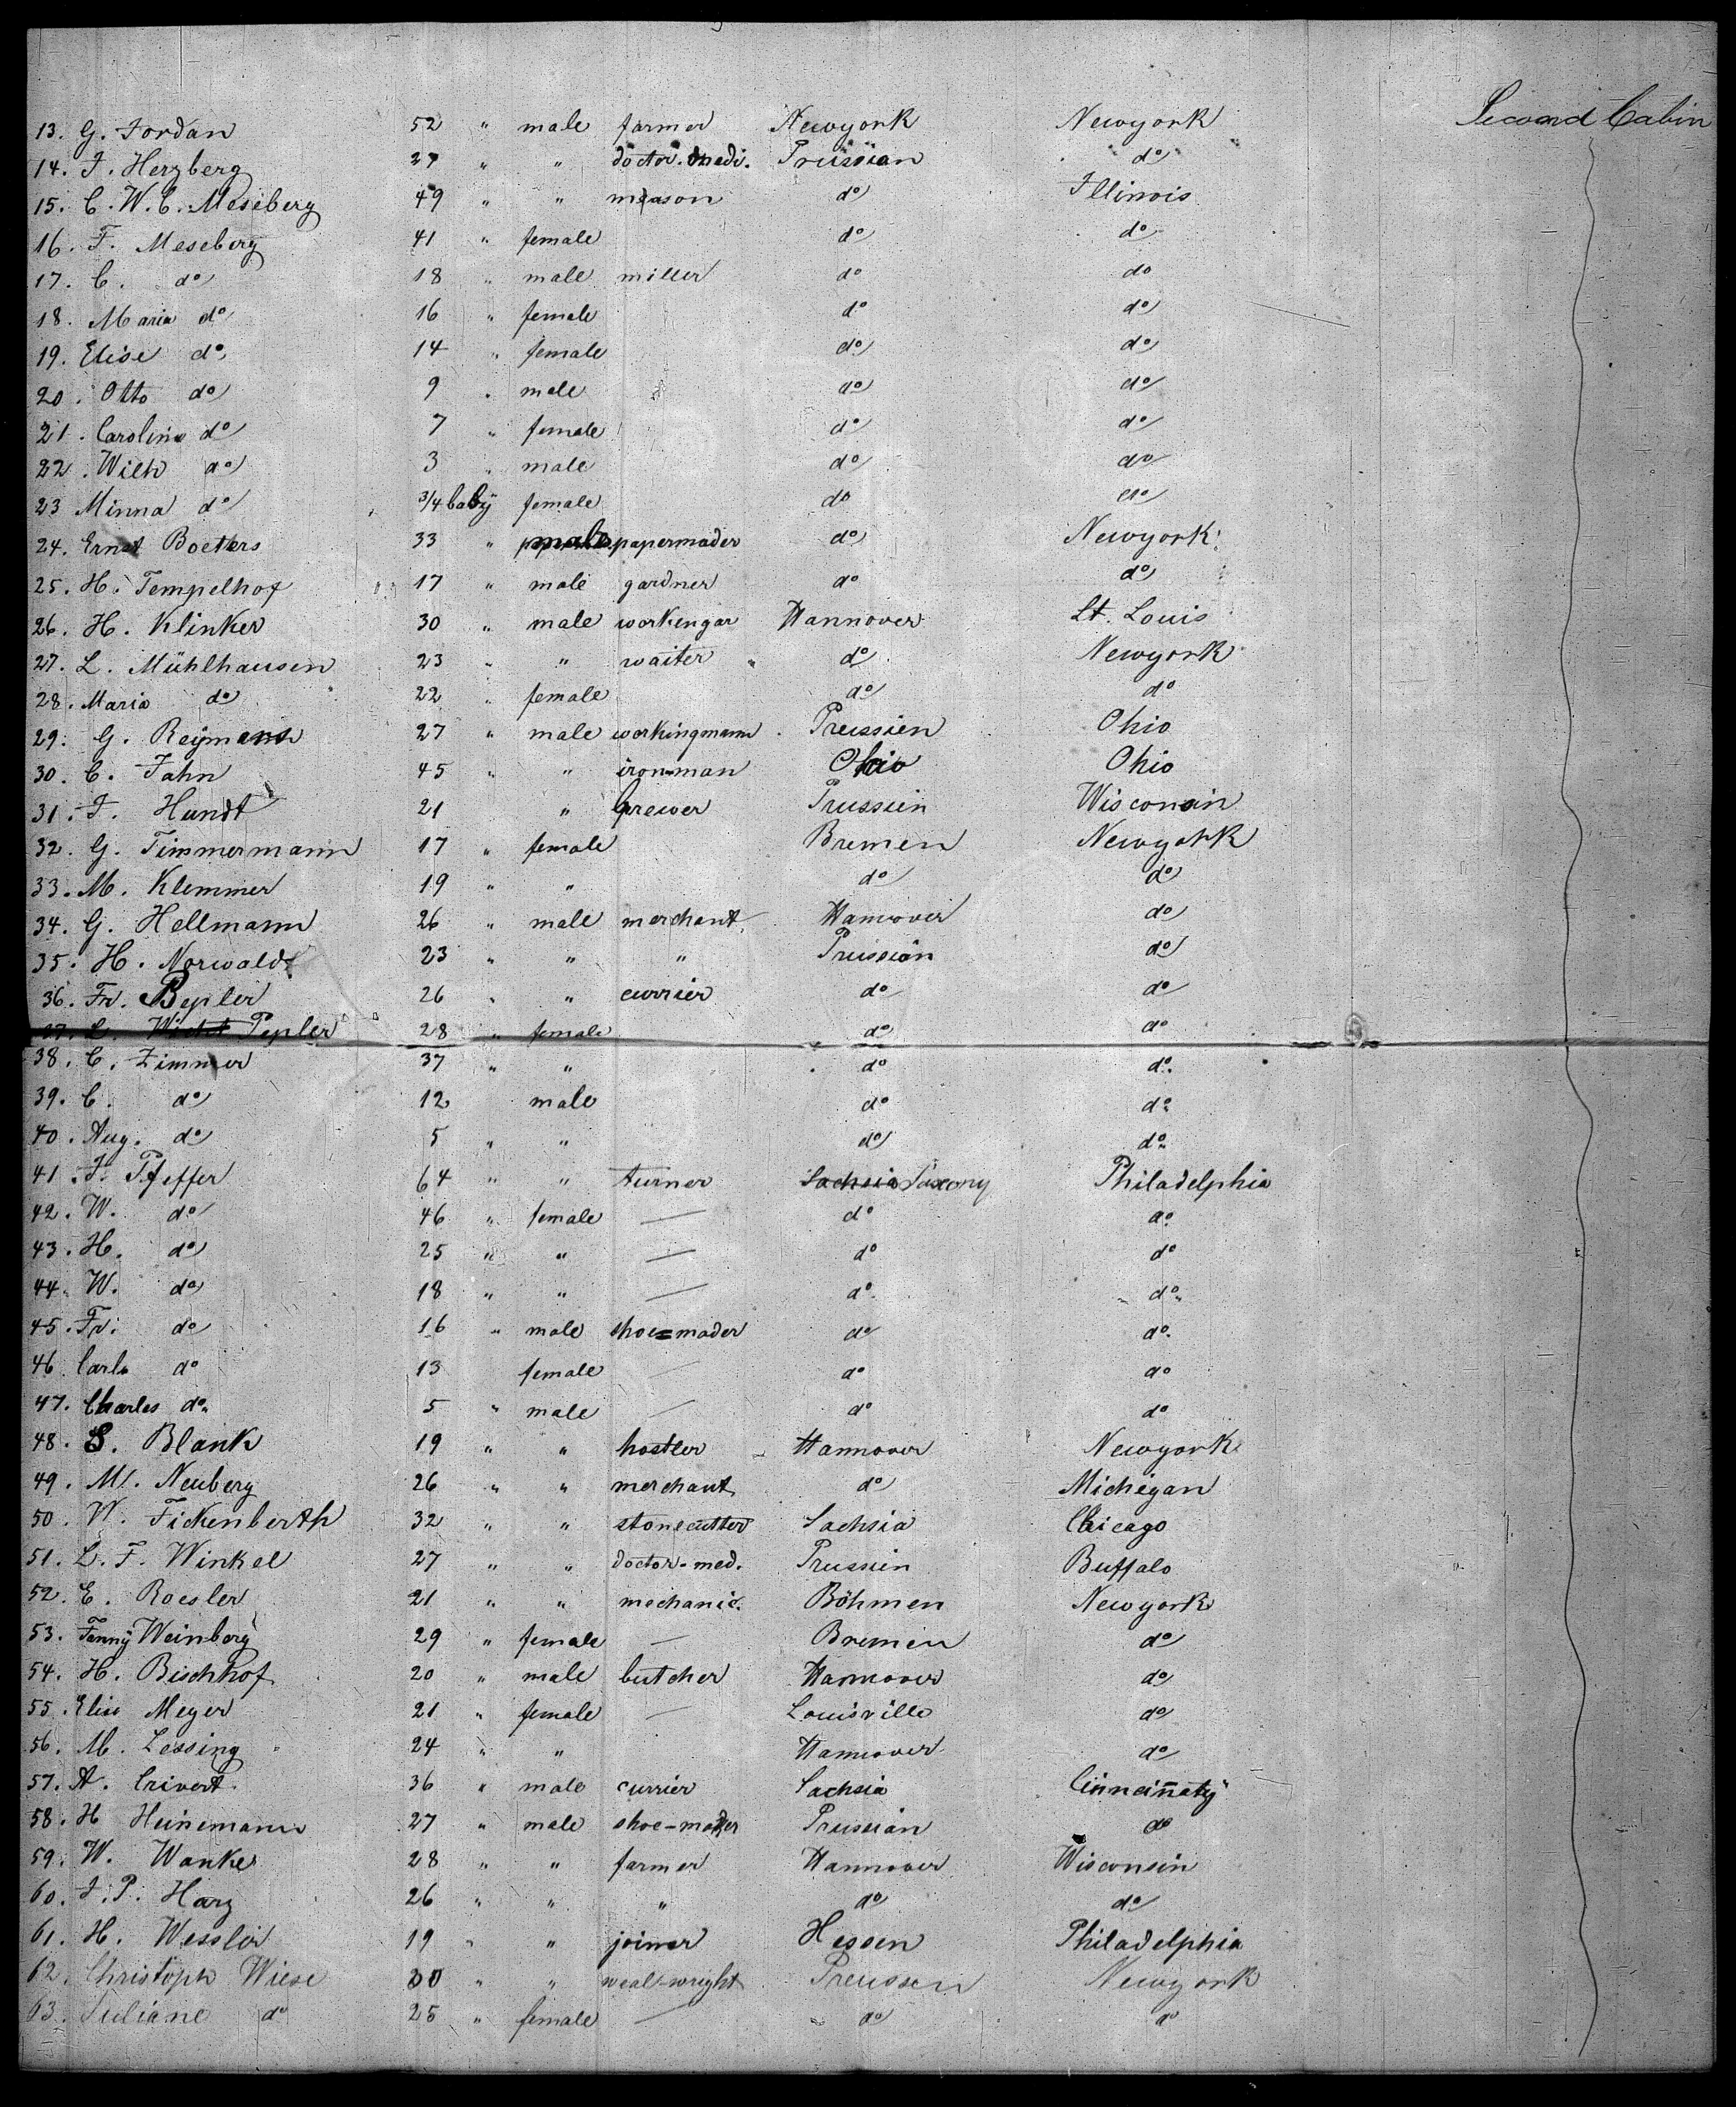 Second Cabin
13. G. Jordan 52 " male farmer Newyork Newyork
14. J. Herzberg 27 " " doctor. medi. Prussian do
15. C. W. C. Meseberg 49 " " meason do Illinois
16. F. Meseberg 41 " female do do
17. C. do 18 " male miller do do
18. Maria do 16 " female do do
19. Elise do 14 " female do do
20. Otto do 9 " male do do
21. Caroline do 7 " female do do
22. Wilh do 3 " male do do
23 Minna do 3/4 baby female do do
24. Ernst Boetters 33 " male papermader do Newyork
25. H. Tempelhof 17 " male gardner do do
26. H. Klinker 30 " male workengar Hannover St. Louis
27. L. Mühlhausen 23 " " waiter " do Newyork
28. Maria do 22 " female do do
29. G. Reymann 27 " male workingmann Preussien Ohio
30. C. Jahn 45 " " iron-man Ohio Ohio
31. J. Hundt 21 " brewer Prussien Wisconsin
32. G. Timmermann 17 " female Bremen Newyork
33. M. Klemmer 19 " " do do
34. G. Hellmann 26 " male merchant Hannover do
35. H. Norwaldt 23 " " " Prussian do
36. Fr. Bepler 26 " " currier do do
37. L. Wicht Pepler 28 " female do do
38. C. Zimmer 37 " " do do
39. C. do 12 male do do
40. Aug. do 5 " " do do
41. J. Pfeffer 64 " " turner Sachsia Saxony Philadelphia
42. W. do 46 " female — do do
43. H. do 25 " " — do do
44. W. do 18 " " — do do
45. Fr. do 16 " male shoe=mader do do
46. Carla do 13 female — do do
47. Charles do 5 " male — do do
48. S. Blank 19 " " hostler Hannover Newyork
49. M. Neuberg 26 " " merchant do Michigan
50. W. Fickenberth 32 " " stonecutter Sachsia Chicago
51. L. F. Winkel 27 " " doctor-med. Prussien Buffalo
52. E. Roesler 21 " " mechanic. Böhmen Newyork
53. Fanny Weinberg 29 " female — Bremen do
54. H. Bischhof 20 " male butcher Hannover do
55. Elise Meyer 21 " female — Louisville do
56. M. Lessing 24 " " Hannover do
57. A. Crivert. 36 " male currier Sachsia Cinncinnaty
58. H Heinemann 27 " male shoe-mader Prussian do
59. W. Wanke 28 " " farmer Hannover Wisconsin
60. J. P. Harz 26 " " " do do
61. H. Wessler 19 " " joiner Hessen Philadelphia
62. Christoph Wiese 30 " " weal-wright Preussen Newyork
63. Juliane do 25 " female — do do